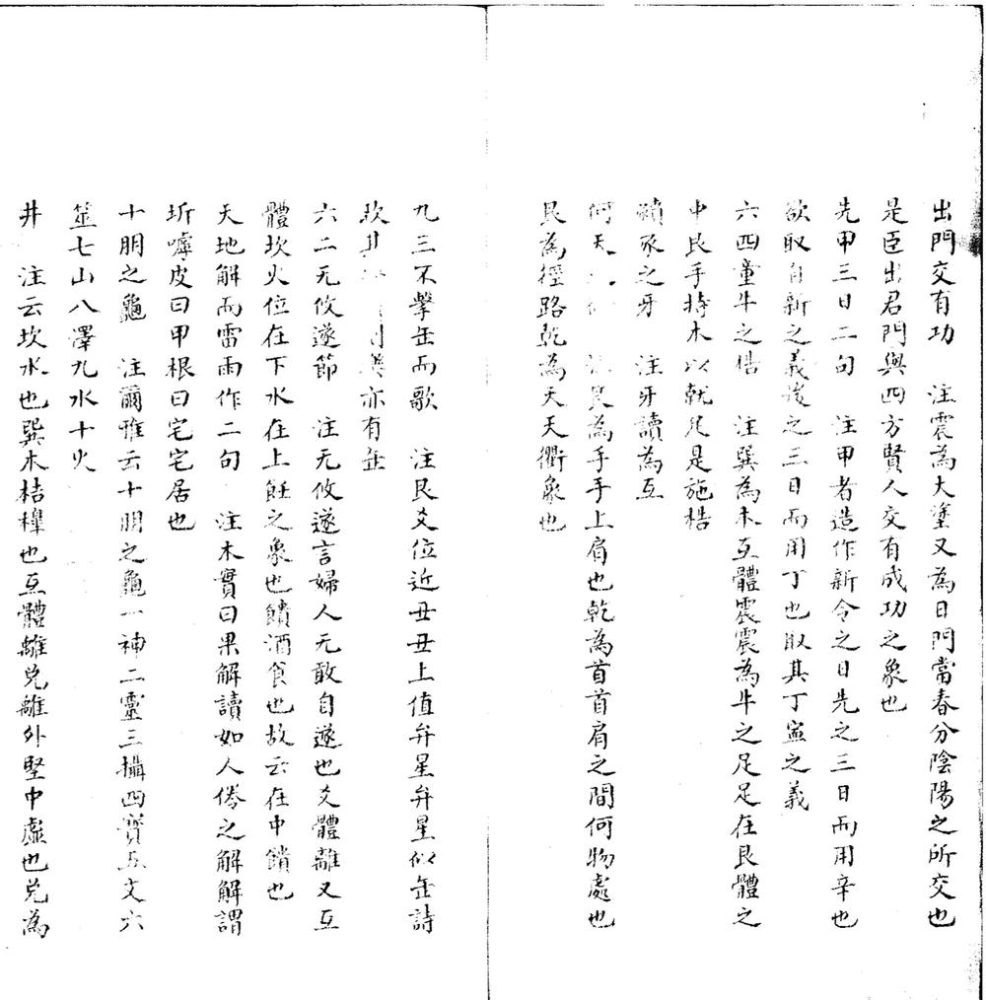 出門交有功　注震為大塗又為日門當春分陰陽之所交也
是臣出君門與四方賢人交有成功之象也
先甲三日二句　注甲者造作新令之日先之三日而用辛也
欲取自新之義後之三日而用丁也取其丁寧之義
六四童牛之梏　注巽為木互體震震為牛之足足在艮體之
中艮手持木以就足是施梏
豶豕之牙　注牙讀為互
何天　艮為手手上肩也乾為首首肩之間何物處也
艮為徑路乾為天天衢象也
九三不擊缶而歌　注艮爻位近丑丑上值弁星弁星似缶詩
坎其　亦有缶
六二无攸遂節　注无攸遂言婦人无敢自遂也爻體離又互
體坎火位在下水在上飪之象也饋酒食也故云在中饋也
天地解而雷雨作二句　注木實曰果解讀如人倦之解解謂
坼嘑皮曰甲根曰宅宅居也
十朋之龜　注爾雅云十朋之龜一神二靈三攝四寶五文六
筮七山八澤九水十火
井　注云坎水也巽木桔橰也互體離兌離外堅中虛也兌為